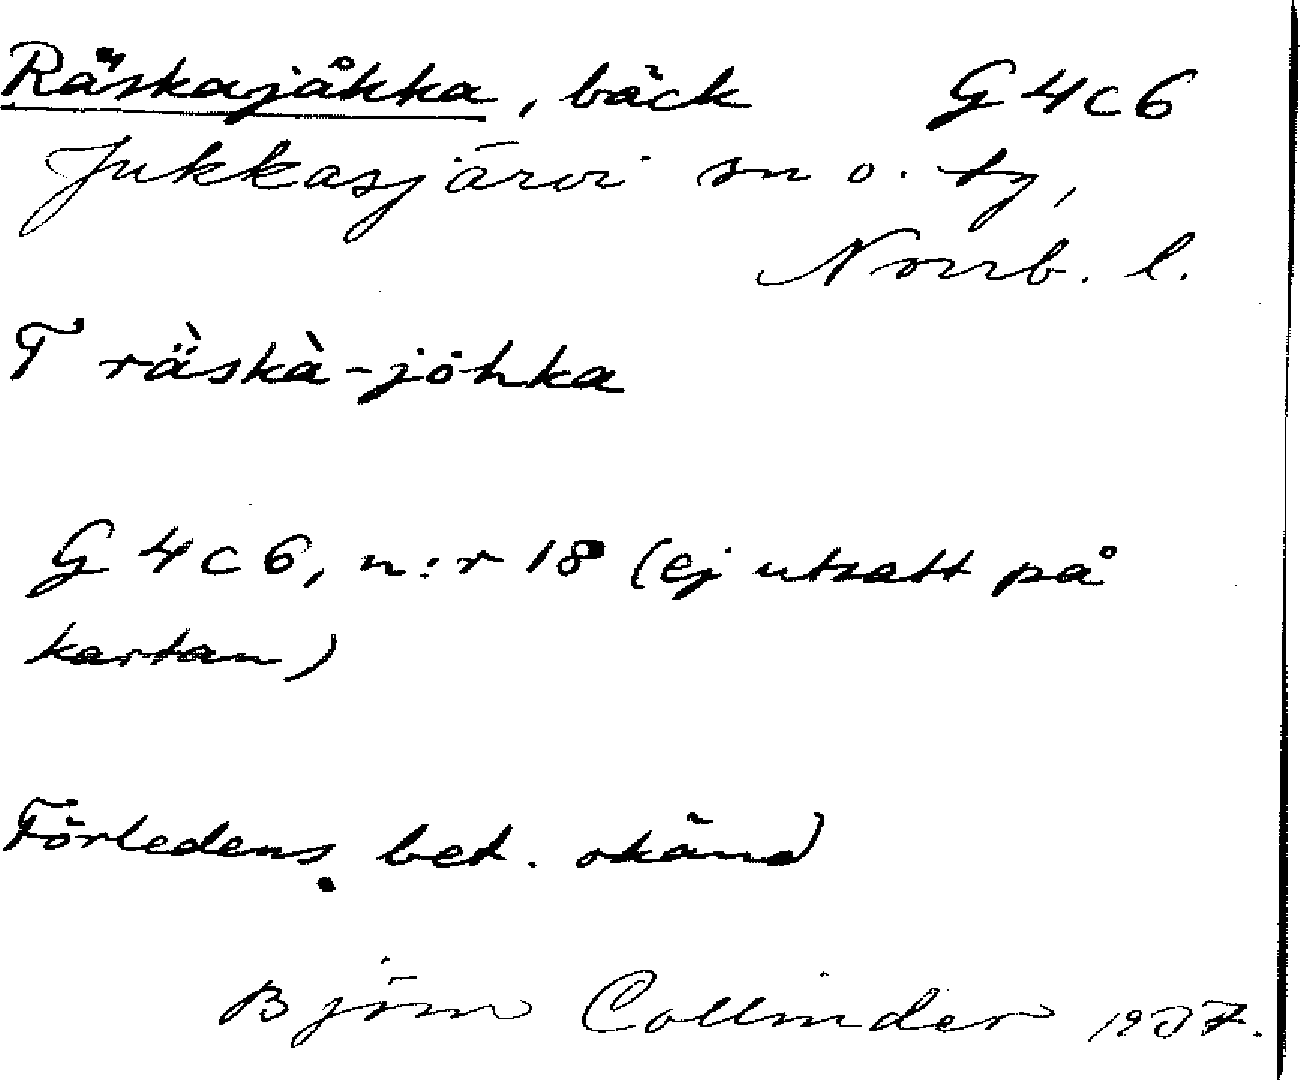 Räskajåkka, bäck G4c6
Jukkasjärvi sn o. tg,
Norrb. l.
T räskà-jòhka
G4c6, n:r 18 (ej utsatt på
kartan)
Förledens bet. okänd
Björn Collinder 1937.